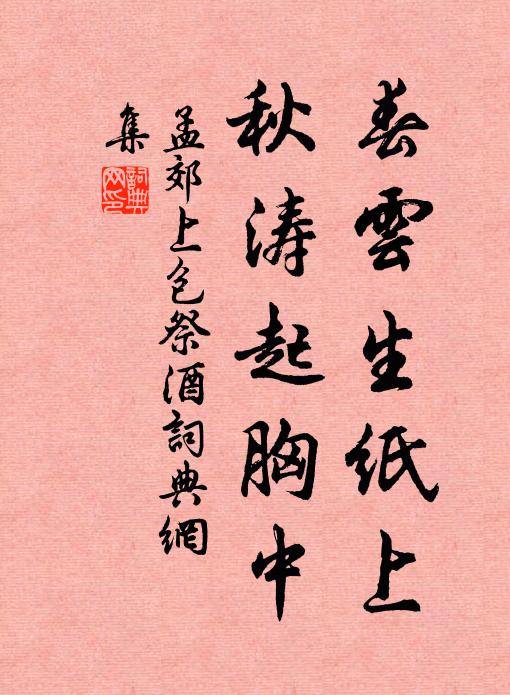 春雲生纸上
秋涛起胸中
孟郊上包祭酒詞典網
集
詞典
网印